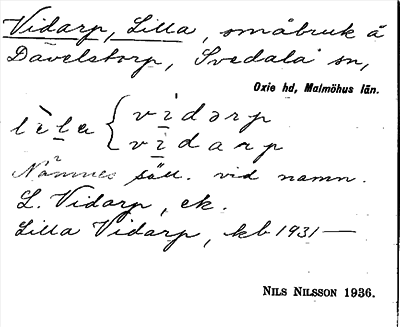 Vidarp, Lilla, småbruk å
Dävelstorp, Svedala sn,
Oxie hd, Malmöhus län.
lèla { vidərp
vidarp
Nämnes säll. vid namn.
L. Vidarp, ek.
Lilla Vidarp, kb 1931—
NILS NILSSON 1936.